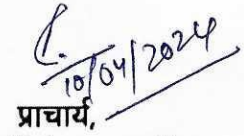 10/04/2024
प्राचार्य,